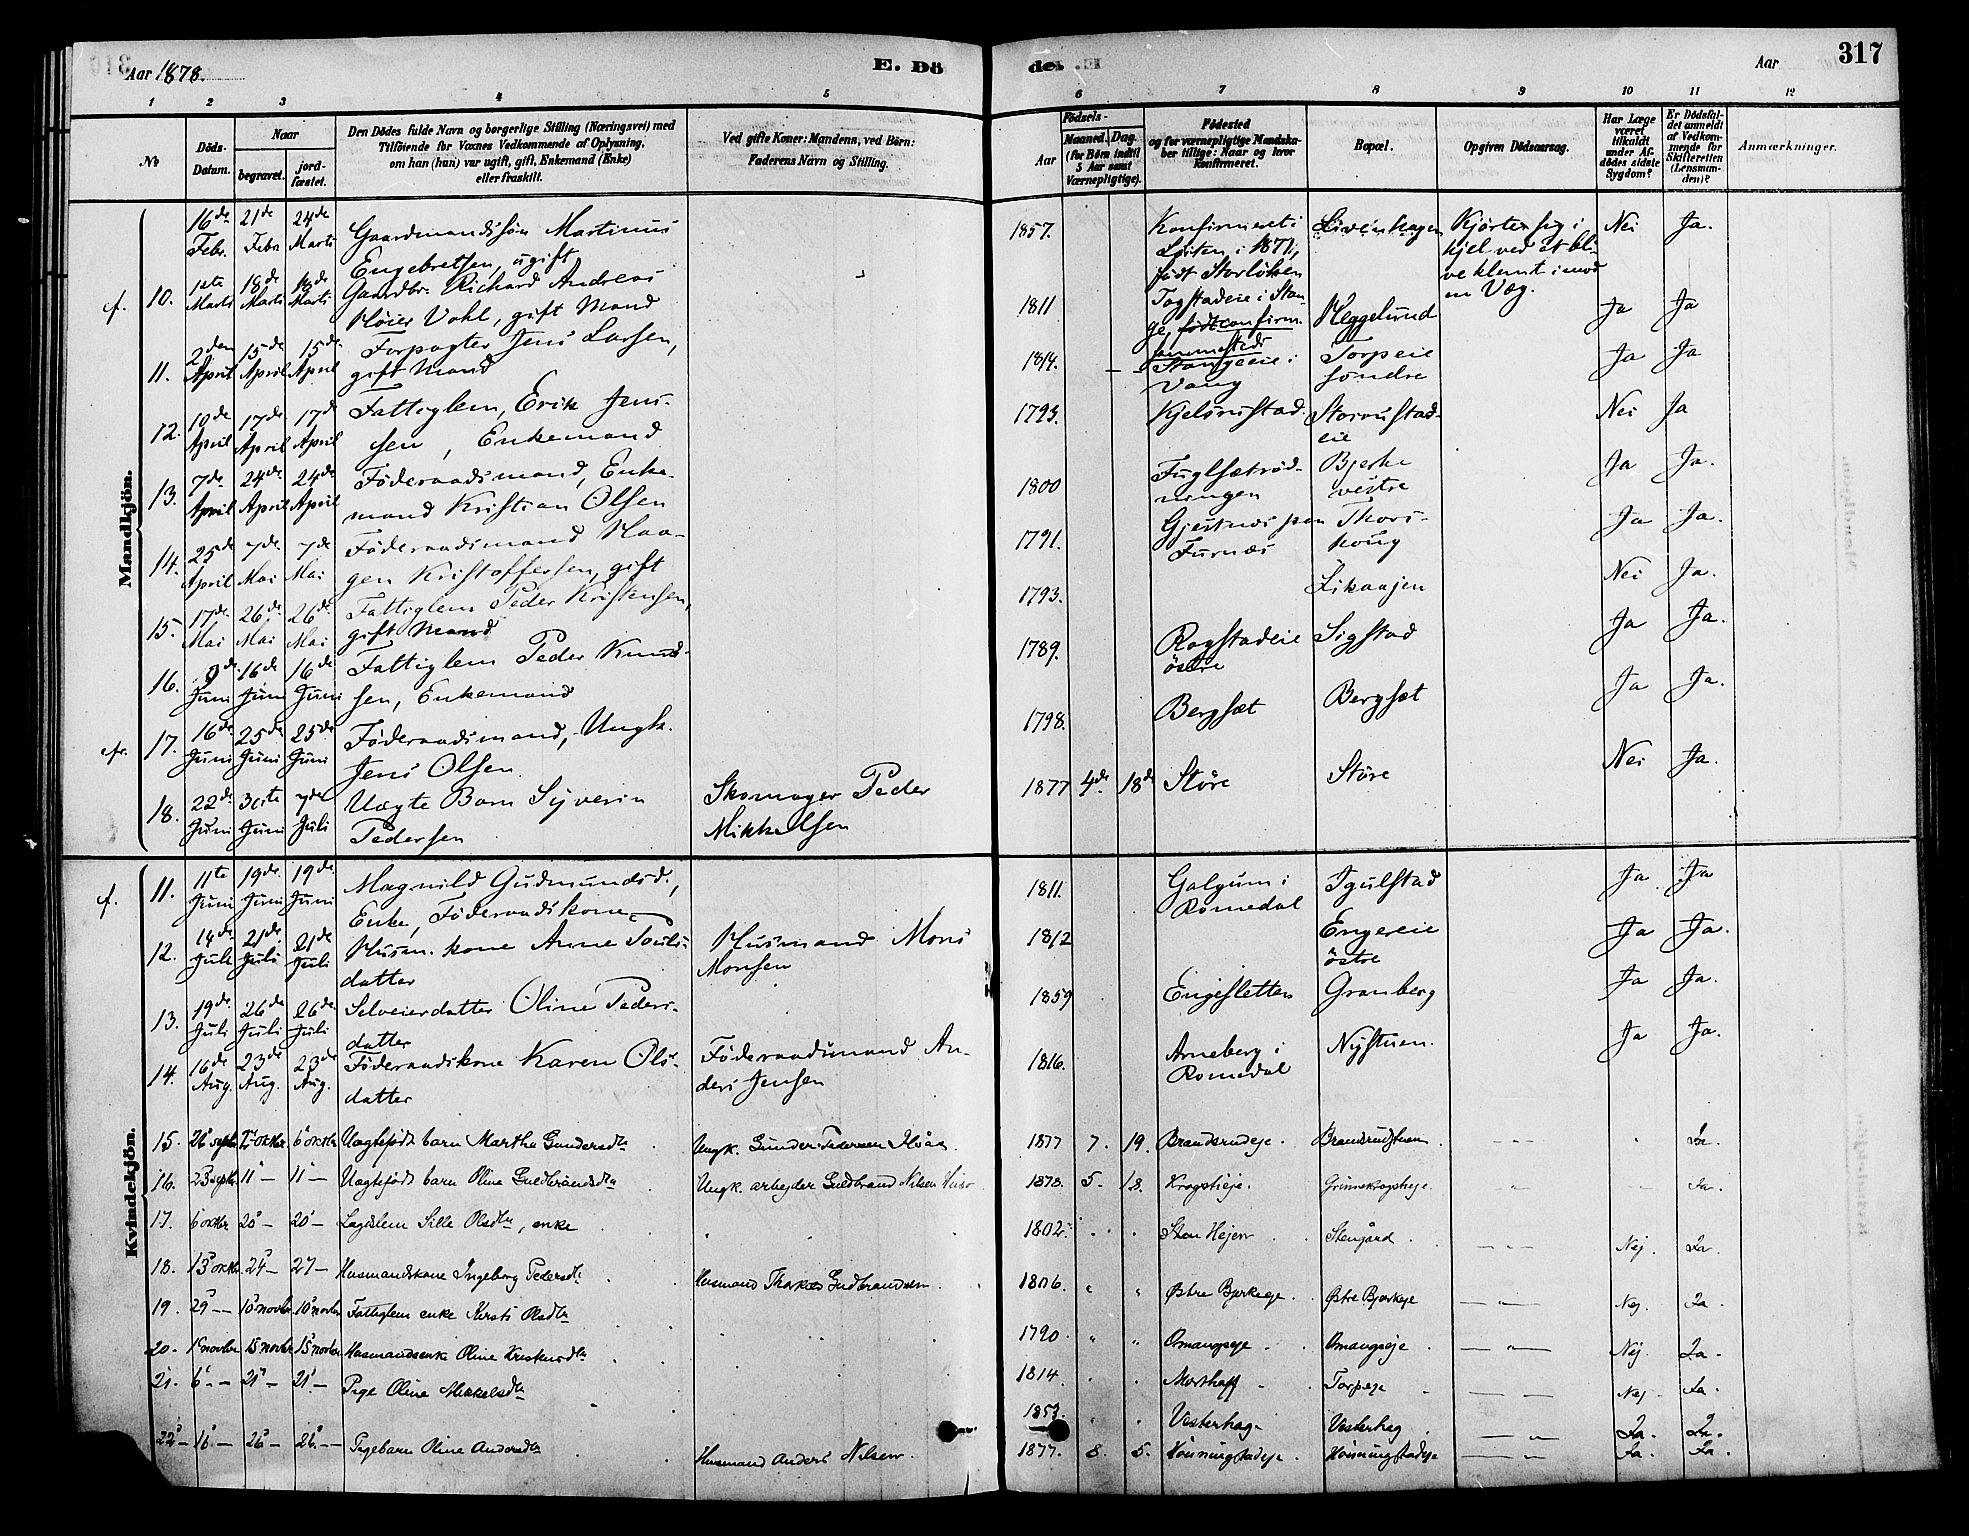 Aar 1878.
E. Dö
1 2 3 4 5
No
Döds-
Datum.
Naar
begravet.
jord-
fæstet.
Den Dödes fulde Navn og borgerlige Stilling (Næringsvei) med
Tilföiende for Voxnes Vedkommende af Oplysning,
om han (hun) var ugift, gift, Enkemand (Enke)
eller fraskilt.
Ved gifte Koner: Mandens, ved Börn:
Faderens Navn og Stilling.
Mandkjön.
16de Febr. 21de Febr 24de Marts Gaardmandssøn Martinus
Engebretsen, ugift
f. 10. 1ste Marts 18de Marts 18de Marts Gaardbr. Richard Andreas
Høier Vohl, gift Mand
11. 2den April 15de April 15de April Forpagter Jens Larsen,
gift Mand
12. 10de April 17de April 17de April Fattiglem, Erik Jen-
sen, Enkemand
13. 7de April 24de April 24de April Föderaadsmand, Enke-
mand Kristian Olsen
14. 25de April 7de Mai 7de Mai Föderaadsmand Haa-
gen Kristoffersen, gift
15. 17de Mai 26de Mai 26de Mai Fattiglem Peder Kristensen,
gift Mand
16. 9de Juni 16de Juni 16de Juni Fattiglem Peder Knud-
sen, Enkemand
17. 16de Juni 25de Juni 25de Juni Föderaadsmand, Ungk.
Jens Olsen
18. 22de Juni 30te Juni 7de Juli Uægte Barn Syverin Skomager Peder
Pedersen Mikkelsen
Kvindekjön.
f. 11. 11te Juni 19de Juni 19de Juni Magnild Gudmundsd.,
Enke, Föderaadskone
12. 14de Juli 21de Juli 21de Juli Husm. kone Anne Pouls- Husmand Mons
datter Monsen
13. 19de Juli 26de Juli 26de Juli Selveierdatter Oline Peders-
datter
14. 16de Aug. 23de Aug. 23de Aug. Föderaadskone Karen Ols- Föderaadsmand An-
datter ders Jensen
15. Uægtefødt barn Martha Gundersdtr Ungk. Gunder Pedersen
16. 23 septr 11 — 11 — Uægtefødt barn Oline Guldbrandsdtr Ungk. arbejder Guldbrand Nilsen
17. 6 oktbr 20 — 20 — Lægdslem Sille Olsdtr, enke
18. 13 oktbr 24 — 27 — Husmandskone Ingeborg Pedersdtr Husmand Guldbrandsen
19. 29 — 10 novbr 10 novbr Fattiglem enke Kersti Olsdtr
20. 1 novbr 15 novbr 15 novbr Husmandsenke Oline
21. 6 — 21 — 21 — Pige Oline Mikkelsdtr
22 — 16 — 26 — 26 — Pigebarn Oline Andersdtr Husmand Anders Nilsen
de.
Aar
317
6 7 8 9 10 11 12
Födsels-
Aar
Maaned.
Dag.
(for Börn indtil
5 Aar samt
Værnepligtige).
Födested
og for værnepligtige Mandska-
ber tillige: Naar og hvor
konfirmeret.
Bopæl.
Opgiven Dödsaarsag.
Har Læge
været
tilkaldt
under Af-
dödes sidste
Sygdom?
Er Dödsfal-
det anmeldt
af Vedkom-
mende for
Skifteretten
(Lensman-
den)?
Anmærkninger.
1857. Konfirmeret i Kjørte sig i Nei Ja.
Løiten i 1871, hjel ved at bli-
født Storløken ve klemt imod
en Væg.
1811 i Stan- Heggelund Ja Ja
ge, født confirm.
sammesteds
1814. i Torpeie Ja Ja
Vang søndre
1793. Kjelsrustad Storrustad- Nei Ja
eie
1800 Fuglsætrød- Bjerke Ja Ja.
ningen vestre
1791. paa Skovs- Ja Ja.
Furnæs houg
1793. Nei Ja.
1789. Rogstadeie Sigstad Ja Ja.
östre
1798. Bergsæt Bergsæt Ja Ja.
1877 4de 18de Störe Störe Nei Ja.
1811. i Ja. Ja
Romedal
1812 Engereie Ja Ja.
östre
1859 Engesletten Granberg Ja Ja.
1816. Arneberg i Nystuen. Ja Ja.
Romedal
1877 7. 19. Brandsrudeje. Ja.
1878. 5. 18. Krogstieje. Ja.
1802. Stengård. Nej. Ja.
1806. Østre Bjerkeeje. Østre Bjerkeje Nej. Ja.
1790. Omangseje. Omangseje. Nej. Ja.
1814 Torpeje Nej. Ja.
1853. Vesterhag. Vesterhag. Ja. Ja.
1877. 8. 5. Hönningstadeje. Hönningstadeje Ja. Ja